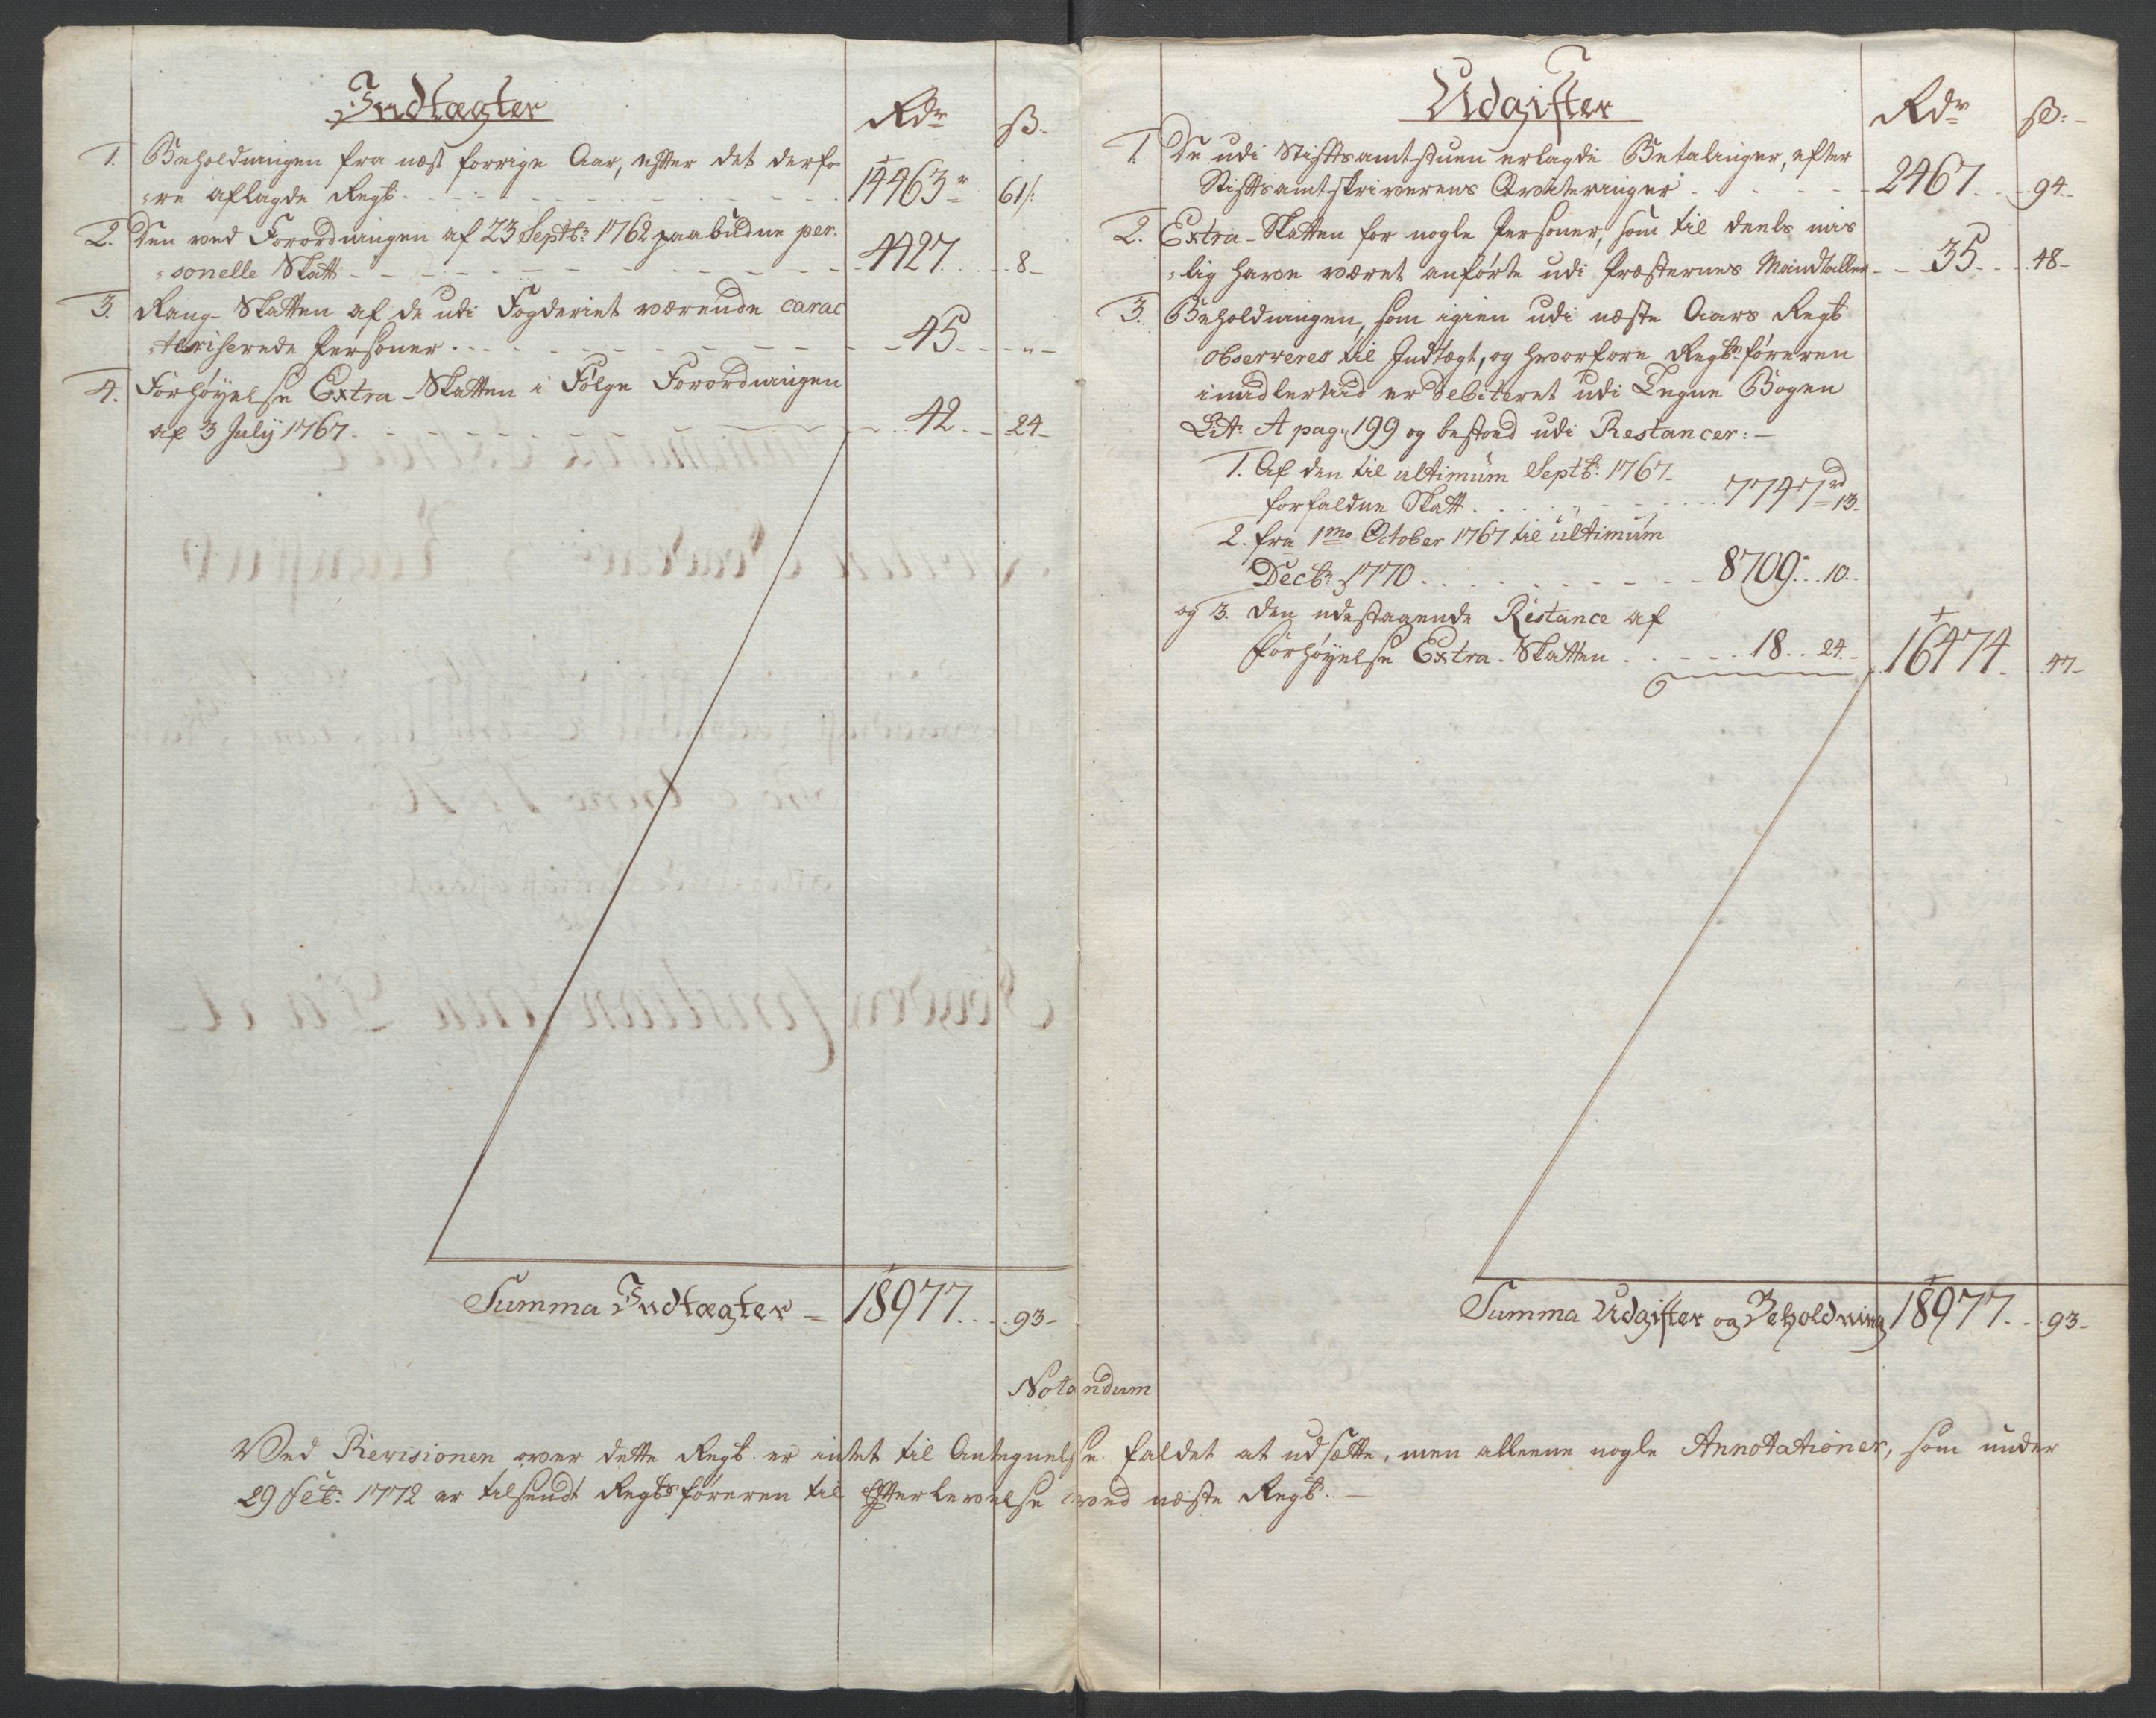 Indtægter
Rdr ß.
1. Beholdningen fra næst forrige Aar, efter det derfo-
-re aflagde Regb. 14463 r 61 ß:
2. Den ved Forordningen af 23 Septbr 1762 paabudne per-
-sonelle Skatt 4427. 8-
3. Rang-Skatten af de udi Fogderiet værende carac
-teriserede Personer 45. "-
4. Forhøyelse Extra-Skatten i Følge Forordningen
af 3 July 1767 42. 24-
Summa Indtægter = 18977. 93-
Udgifter
Rdr ß:-
1. De udi Stiftsamtstuen erlagde Betalinger, efter
Stiftsamtskriverens Qvitteringer 2467. 94-
2. Extra-Skatten for nogle Personer, som til deels
-lig have været anførte udi Præsternes Mandtaller 35. 48-
3. Beholdningen, som igien udi næste Aars Regb
observeres til Indtægt, og hvorfore Regbs føreren
imidlertiid er Debiteret udi Tegne Bogen
Litr: A pag: 199 og bestoed udi Restancer:-
1. Af den til ultimum Septbr: 1767.
forfaldne Skatt 7747 rd 13-
2. fra 1mo October 1767 til ultimum
Decbr 1770 8709. 10.
og 3. den udestaaende Restance af
forhøyelse Extra-Skatten 18. 24.- 16474. 47-
Summa Udgifter og Beholdning 18977. 93-
Notandum
Ved Revisionen over dette Regb. er intet til Antegnelse faldet at udsætte, men alleene nogle Annotationer, som under
29 Febr: 1772 er tilsendt Regbs føreren til Efterlevelse ved næste Regb.-